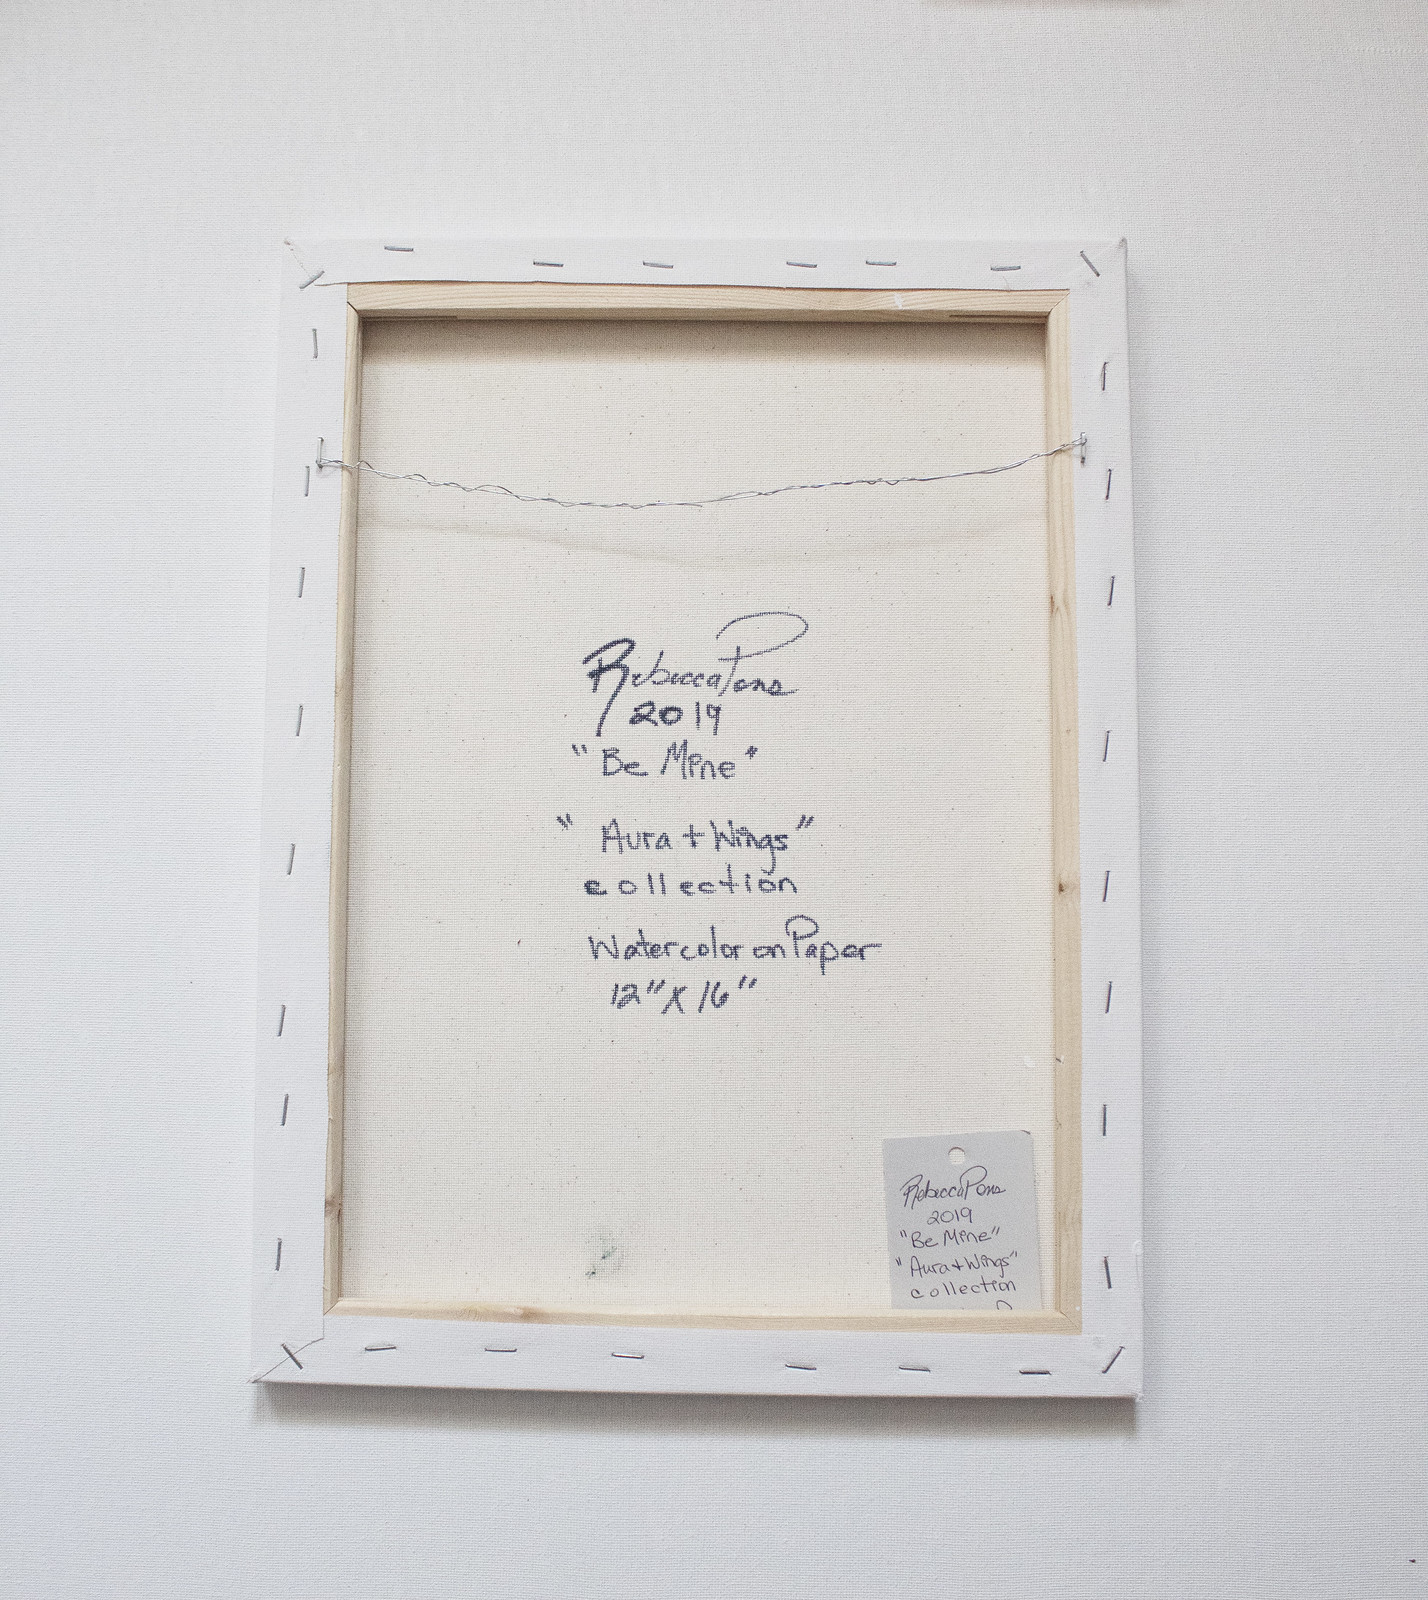 Rebecca Pons
2019
"Be Mine"
"Aura + Wings"
collection
Watercolor on Paper
12" X 16"
Rebecca Pons
2019
"Be Mine"
"Aura + Wings"
collection